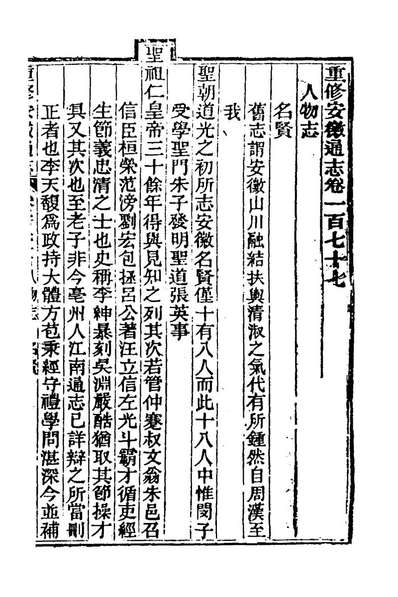 重修安徽通志卷一百七十七
人物志
名賢
舊志謂安徽山川融結扶輿清淑之氣代有所鍾然自周漢至
我
聖朝道光之初所志安徽名賢僅十有八人而此十八人中惟閔子
受學聖門朱子發明聖道張英事
聖祖仁皇帝三十餘年得與見知之列其次若管仲蹇叔文翁朱邑召
信臣桓榮范滂劉宏包拯呂公著汪立信左光斗霸才循吏經
生節義忠清之士也史稱李紳暴刻吳淵嚴酷猶取其節操才
具又其次也至老子非今亳州人江南通志已詳辯之所當刪
正者也李天馥爲政持大體方苞秉經守禮學問湛深今並補